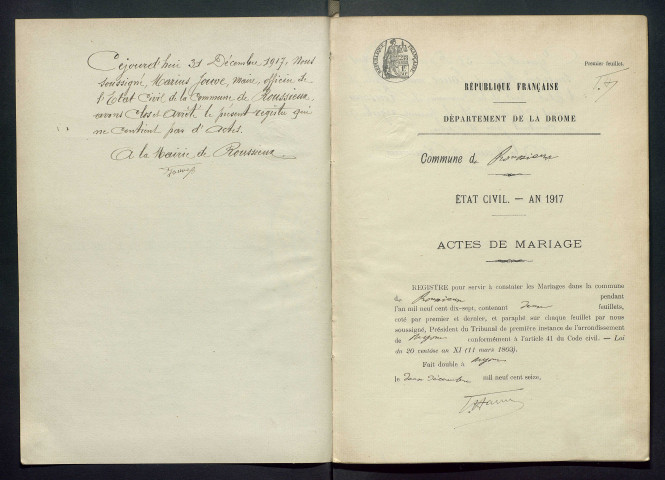 Cejourd'hui 31 Décembre 1917, Nous
soussigné, Marius Jouve, maire, officier de
l'Etat Civil de la Commune de Roussieux,
avons Clos et Arrêté le présent registre qui
ne contient pas d'Actes.
A la Mairie de Roussieux
Jouve
Premier feuillet.
RÉPUBLIQUE FRANÇAISE
DÉPARTEMENT DE LA DROME
Commune d Roussieux
ÉTAT CIVIL. — AN 1917
ACTES DE MARIAGE
REGISTRE pour servir à constater les Mariages dans la commune
de Roussieux pendant
l'an mil neuf cent dix-sept, contenant feuillets,
coté par premier et dernier, et paraphé sur chaque feuillet par nous
soussigné, Président du Tribunal de première instance de l'arrondissement
de Nyons conformément à l'article 41 du Code civil. — Loi
du 20 ventôse an XI (11 mars 1803).
Fait double à Nyons
le décembre mil neuf cent seize,